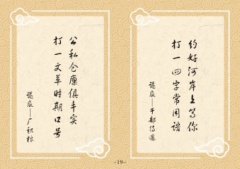 公私仓廪俱丰实
打一文革时期口号
谜底——广积粮
约好河岸上等你
打一四字常用语
谜底——
-19-